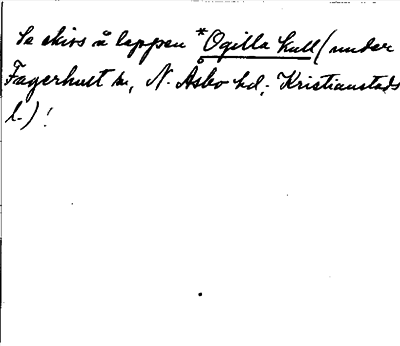 Se skiss å lappen *Ogilla kull (under
Fagerhult sn, N. Åsbo hd, Kristianstads
l.)!